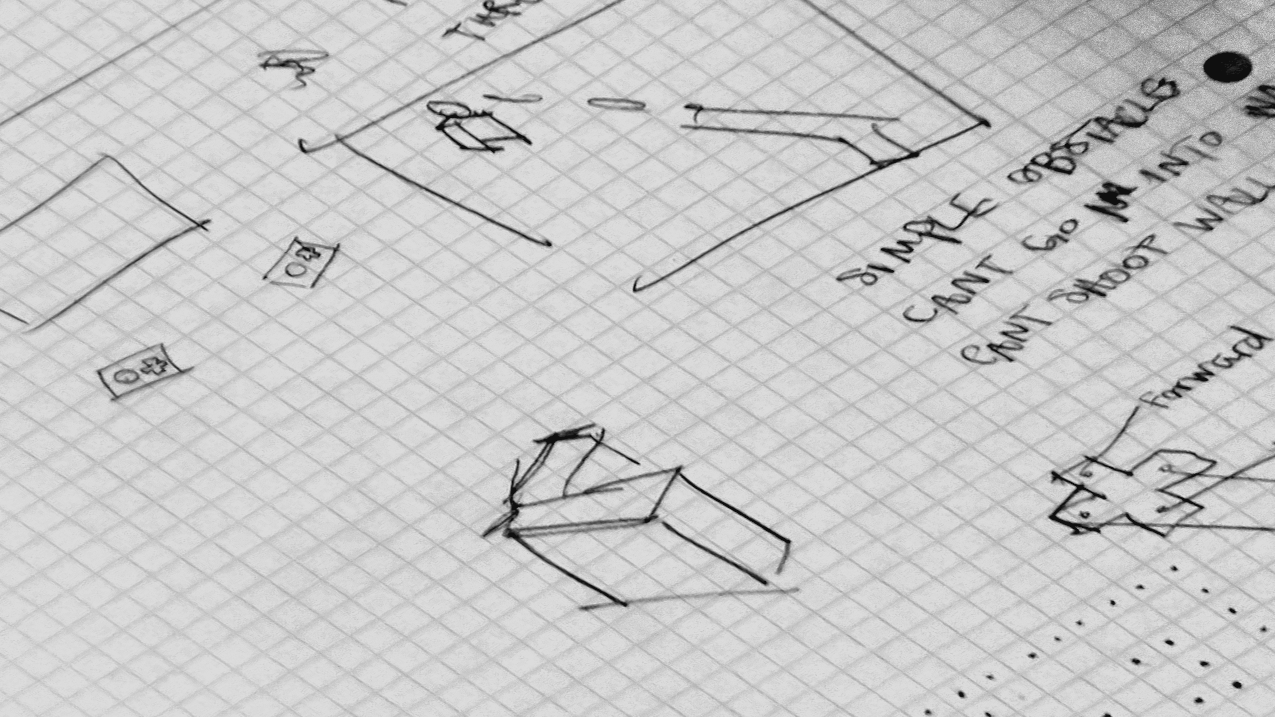 SIMPLE OBSTACLES
CANT GO INTO
CANT SHOOT WALL
Forward